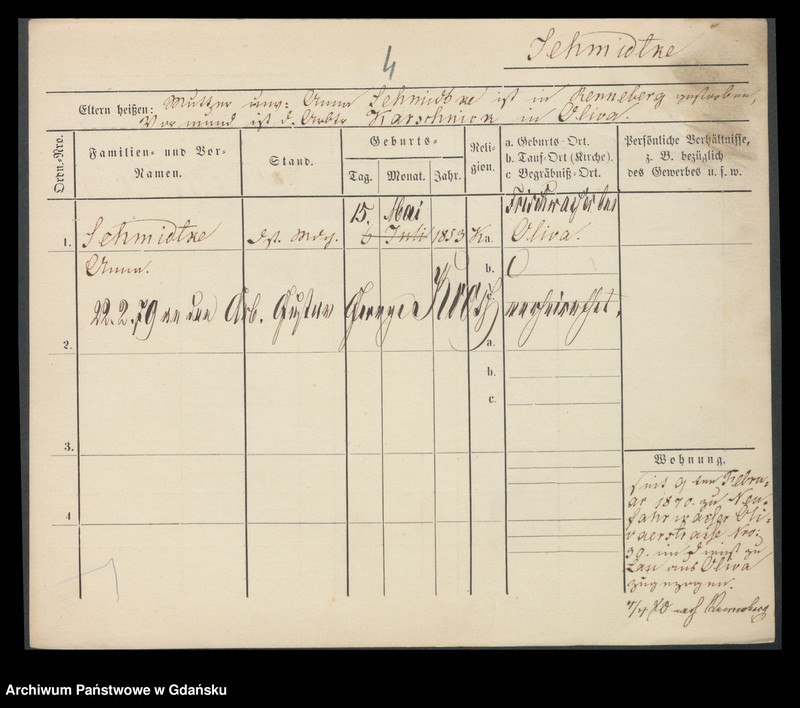 Schmidtke
4
Eltern heißen: Mutter unv: Anna Schmidtke ist in Renneberg gestorben,
Vormund ist d. Arbtr Karschnick in Oliva.
Ordn.-Nro.
Familien- und Vor-Namen.
Stand.
Geburts-
Tag. Monat. Jahr.
Religion.
a. Geburts-Ort.
b. Tauf-Ort (Kirche).
c Begräbniß-Ort.
Persönliche Verhältnisse,
z. B. bezüglich
des Gewerbes u. s. w.
15. Mai
1. Schmidtke 6 Juli 1853 K a. Oliva.
Anna.
b.
c
22.2.79 an den Arb. Gustav verheirathet.
2. a.
b.
c.
3.
4
Wohnung.
seit 9ten Februar
1870. zu Neufahrwasser
Olivaerstraße Nro:
39. zu
aus Oliva
zugezogen.
nach Renneberg
Archiwum Państwowe w Gdańsku